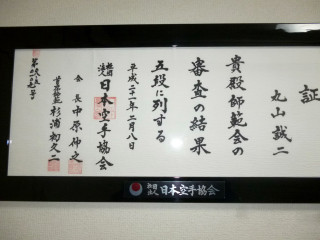 証
丸山誠二
貴殿師範会の
審査の結果
五段に列する
平成二十一年二月八日
社団法人 日本空手協会
会長 中原伸之
首席師範 杉浦初久二
社団法人 日本空手協会